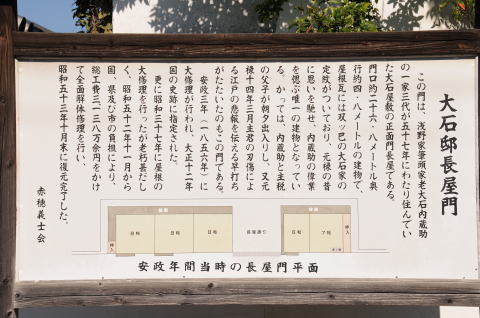 大石邸長屋門
この門は、浅野家筆頭家老大石内蔵助
の一家三代が五十七年にわたり住んでい
た大石屋敷の正面長屋門である。
門口約二十六・八メートル奥
行約四・八メートルの建物で、
屋根瓦には双ツ巴の大石家の
定紋がついており、元禄の昔
に思いを馳せ、内蔵助の偉業
を偲ぶ唯一の建物となってい
る。かっては、内蔵助と主税
の父子が朝夕出入りし、又元
禄十四年三月主君の刃傷によ
る江戸の悲報を伝える早打ち
がたたいたのもこの門である。
安政三年(一八五六年)に
大修理が行われ、大正十二年
国の史跡に指定された。
更に昭和三十七年に屋根の
大修理を行ったが老朽甚だし
く、昭和五十二年十一月から
国、県及び市の負担により、
総工費三一三八万余円をかけ
て全面解体修理を行い、
昭和五十三年十月末に復元完了した。
赤穂義士会
押入
日旺
日旺
日旺
日旺
7旺
押入
安政年間当時の長屋門平面